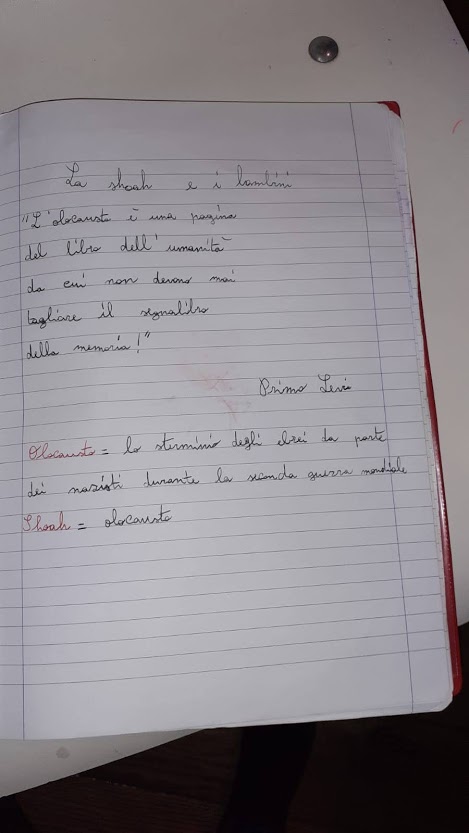 La shoah e i bambini
"L'olocausto è una pagina
del libro dell'umanità
da cui non devono mai
tagliare il segnalibro
della memoria!"
Primo Levi
Olocausto = lo sterminio degli ebrei da parte
dei nazisti durante la seconda guerra mondiale
Shoah = olocausto